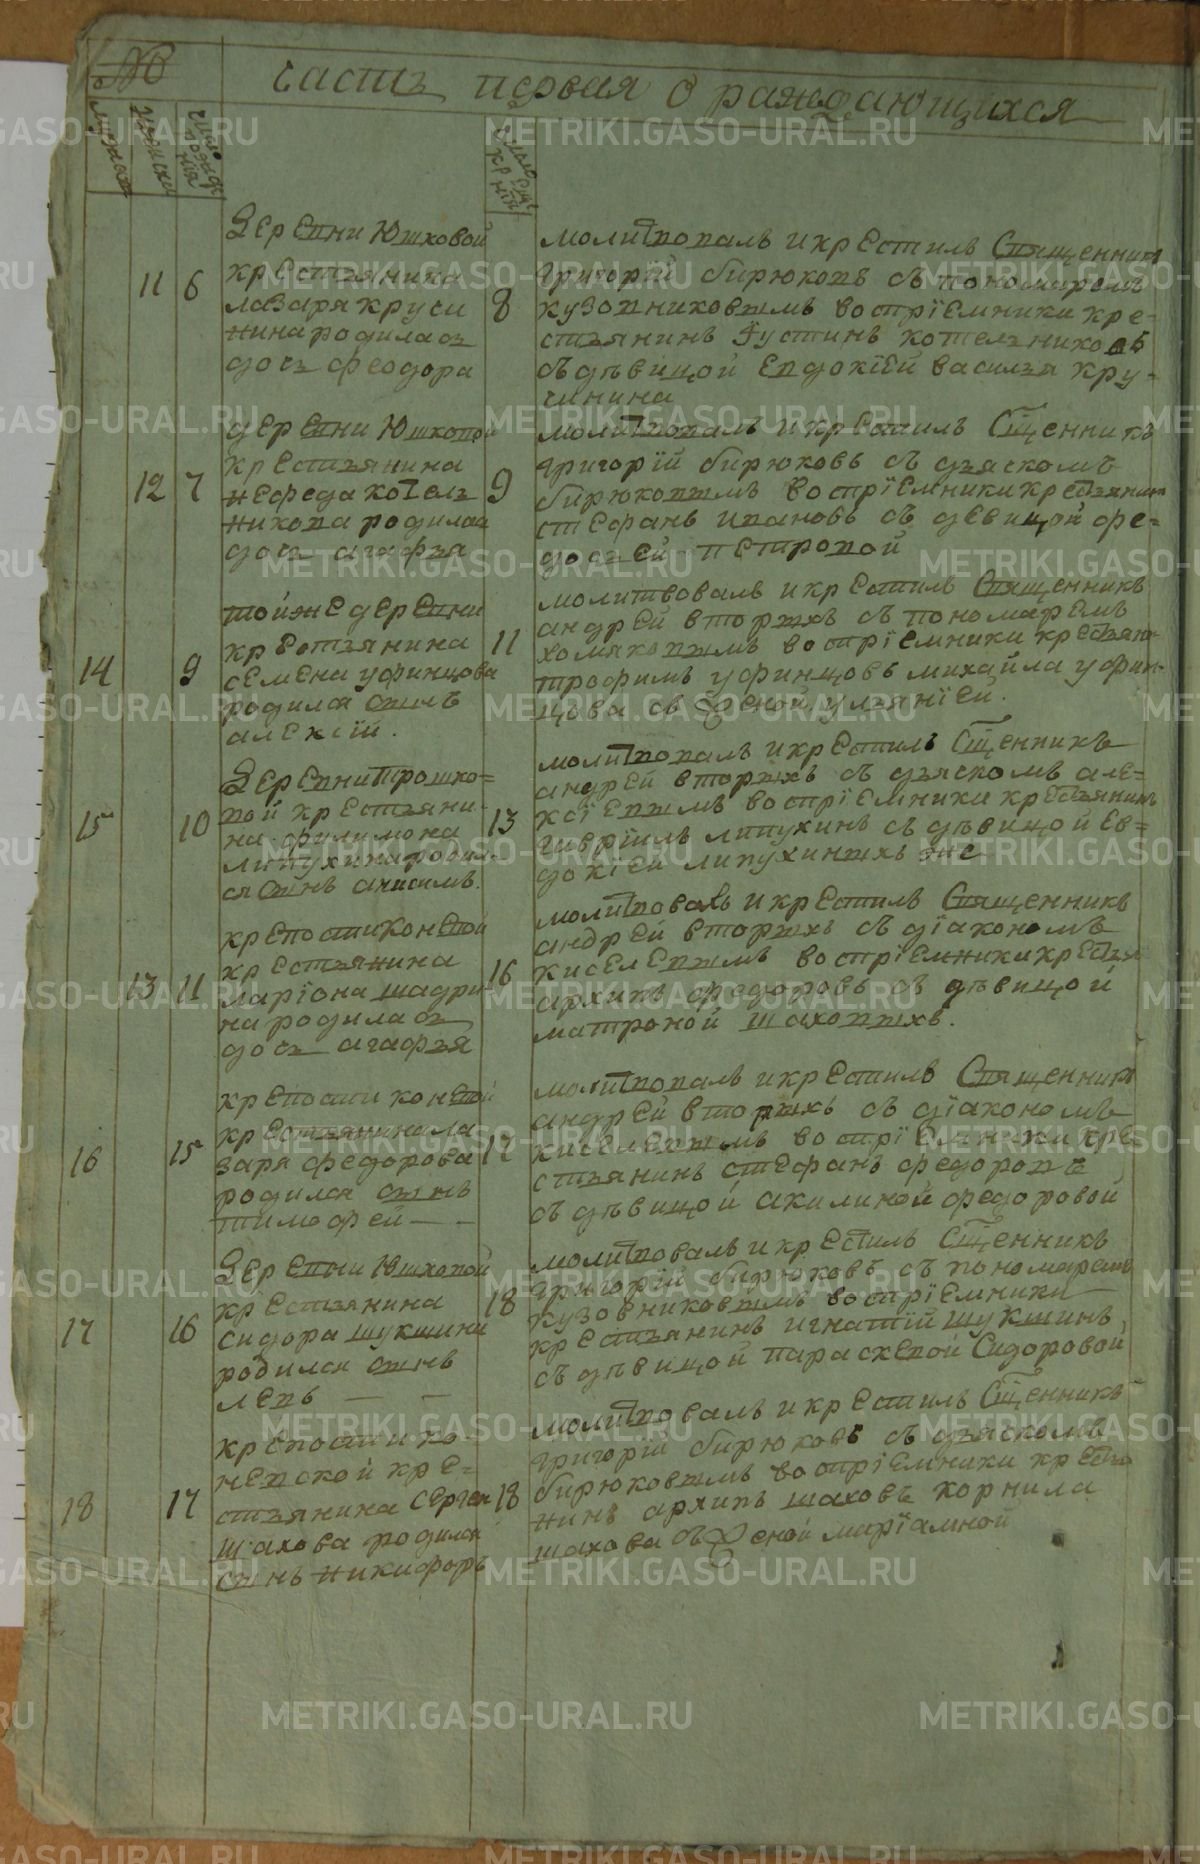 №
часть первая о раждающихся
мужеск
женски
число рождения
число крщения
Деревни Юшковой
крестьянина
лазаря кручи
нина родилась
дочь феодора
11 6 8
молитвовалъ и крестилъ Священникъ
григорїй бирюковъ съ пономаремъ
кузовниковымъ восприемники кре=
стьянинъ Густинъ котельниковъ
съ дѣвицой евдокїей василья кру=
чинина
деревни Юшковой
крестьянина
нефеда котель
никова родилас
дочь агафья
12 7 9
молитвовалъ и крестилъ Сщенникъ
григорїй бирюковъ съ дьяскомъ
бирюковымъ воспрїемники крестьянин
стефанъ ивановъ съ девицой фе=
досьей петровой
тойже деревни
крестьянина
семена уфинцова
родился сынъ
алексїй.
14 9 11
молитвовалъ и крестилъ Священникъ
андрей вторыхъ съ пономаремъ
хомяковымъ воспрїемники крестьян
трофимъ уфинцовъ михайла уфин=
цова съ женой ульянїей.
Деревни Прошко=
вой крестьяни
на филимона
липухина родил
ся сынъ анисимъ.
15 10 13
молитвовалъ и крестилъ Сщенникъ
андрей вторыхъ съ дьяскомъ але=
ксїевымъ воспрїемники крестьянинъ
гаврїилъ липухинъ съ дѣвицой ев=
докїей липухиныхъ же
крепости Коневой
крестьянина
ларїона шадри
на родилась
дочь агафья
13 11 16
молитвовалъ и крестилъ Священникъ
андрей вторыхъ съ дїакономъ
киселевымъ воспрїемники крестья
архипъ федоровъ съ дѣвицой
матроной шаховыхъ.
крепости коневой
крестьянина ла
заря федорова
родился сынъ
тимофей — —
16 15 17
молитвовалъ и крестилъ Священникъ
андрей вторыхъ съ дїакономъ
киселевымъ воспрїемники кре
стьянинъ стефанъ федоровъ
съ дѣвицой акилиной федоровой
Деревни Юшковой
крестьянина
сидора шукшина
родился сынъ
левъ — —
17 16 18
молитвовалъ и крестилъ Сщенникъ
григорїй бирюковъ съ пономарем
кузовниковымъ воспрїемники
крестьянинъ игнатїй шукшинъ
съ дѣвицой параскевой Сидоровой
крепости ко=
невской кре=
стьянина Сергея
шахова родился
сынъ никифоръ
18 17 18
молитвовалъ и крестилъ Сщенникъ
григорїй бирюковъ съ дьяскомъ
бирюковымъ воспрїемники крестья
нинъ архипъ шаховъ корнила
шахова съ женой марїамной
METRIKI.GASO-URAL.RU